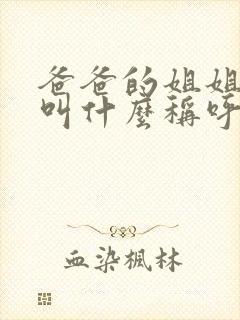 爸爸的姐姐
叫什麼稱呼
血染楓林